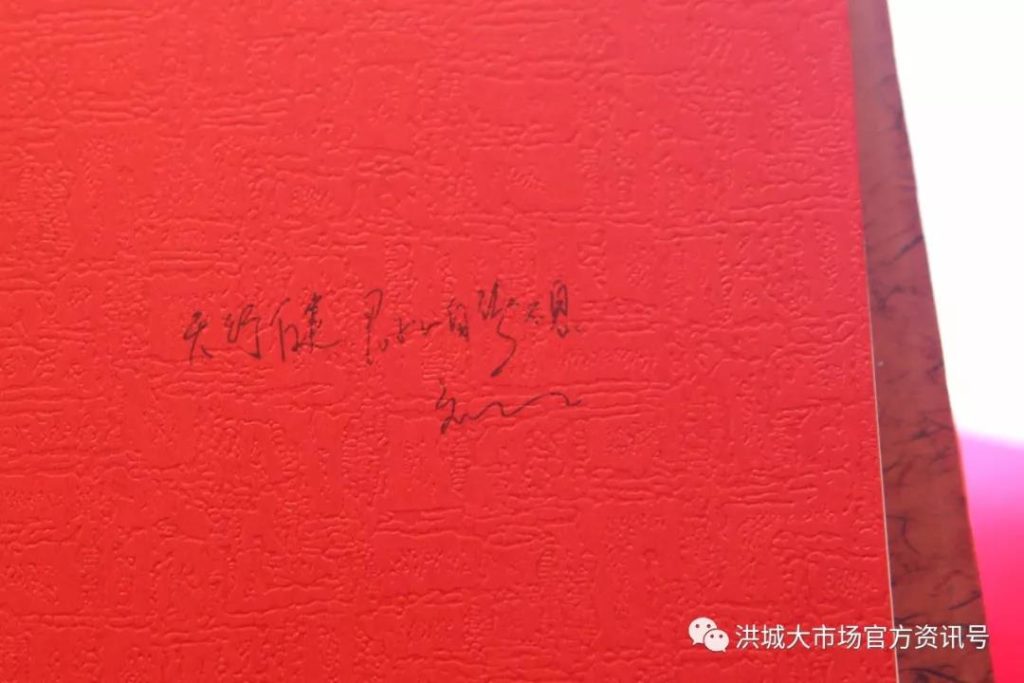 天行健 君子以自强不息
洪城大市场官方资讯号